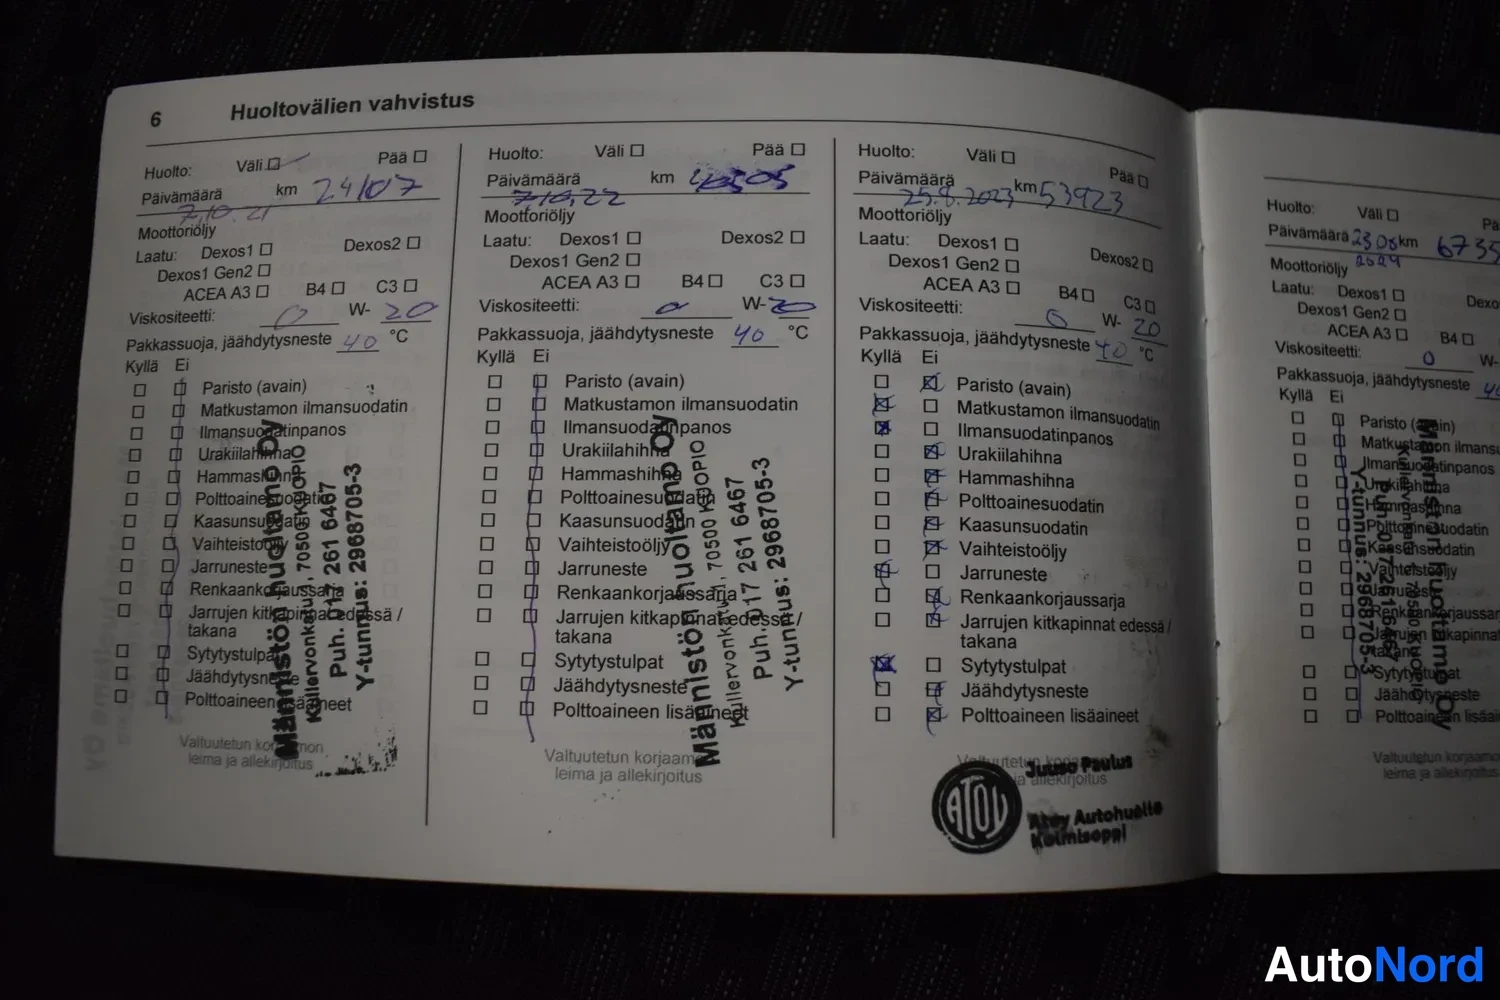 6 Huoltovälien vahvistus
Huolto: Väli ☐ Pää ☐
Päivämäärä 7.10.21 km 24107
Moottoriöljy
Laatu: Dexos1 ☐ Dexos2 ☐
Dexos1 Gen2 ☐
ACEA A3 ☐ B4 ☐ C3 ☐
Viskositeetti: 0 W- 20
Pakkassuoja, jäähdytysneste 40 °C
Kyllä Ei
Paristo (avain)
Matkustamon ilmansuodatin
Ilmansuodatinpanos
Urakiilahihna
Hammashihna
Polttoainesuodatin
Kaasunsuodatin
Vaihteistoöljy
Jarruneste
Renkaankorjaussarja
Jarrujen kitkapinnat edessä /
takana
Sytytystulpat
Jäähdytysneste
Polttoaineen lisäaineet
Valtuutetun korjaamon
leima ja allekirjoitus
Männistön huoltamo Oy
Kullervonkatu 1, 70500 KUOPIO
Puh. 017 261 6467
Y-tunnus: 2968705-3
Huolto: Väli ☐ Pää ☐
Päivämäärä 7.10.22 km
Moottoriöljy
Laatu: Dexos1 ☐ Dexos2 ☐
Dexos1 Gen2 ☐
ACEA A3 ☐ B4 ☐ C3 ☐
Viskositeetti: 0 W- 20
Pakkassuoja, jäähdytysneste 40 °C
Kyllä Ei
Paristo (avain)
Matkustamon ilmansuodatin
Ilmansuodatinpanos
Urakiilahihna
Hammashihna
Polttoainesuodatin
Kaasunsuodatin
Vaihteistoöljy
Jarruneste
Renkaankorjaussarja
Jarrujen kitkapinnat edessä /
takana
Sytytystulpat
Jäähdytysneste
Polttoaineen lisäaineet
Valtuutetun korjaamon
leima ja allekirjoitus
Männistön huoltamo Oy
Kullervonkatu 1, 70500 KUOPIO
Puh. 017 261 6467
Y-tunnus: 2968705-3
Huolto: Väli ☐ Pää ☐
Päivämäärä 25.8.2023 km 53923
Moottoriöljy
Laatu: Dexos1 ☐ Dexos2 ☐
Dexos1 Gen2 ☐
ACEA A3 ☐ B4 ☐ C3 ☐
Viskositeetti: 0 W- 20
Pakkassuoja, jäähdytysneste 40 °C
Kyllä Ei
Paristo (avain)
Matkustamon ilmansuodatin
Ilmansuodatinpanos
Urakiilahihna
Hammashihna
Polttoainesuodatin
Kaasunsuodatin
Vaihteistoöljy
Jarruneste
Renkaankorjaussarja
Jarrujen kitkapinnat edessä /
takana
Sytytystulpat
Jäähdytysneste
Polttoaineen lisäaineet
Valtuutetun korjaamon
leima ja allekirjoitus
ATOY
Juuso Paulus
Atoy Autohuolto
Kolmisoppi
Huolto: Väli ☐ Pä
Päivämäärä 2308 km 6735
2024
Moottoriöljy
Laatu: Dexos1 ☐ Dexo
Dexos1 Gen2 ☐
ACEA A3 ☐ B4 ☐
Viskositeetti: 0 W-
Pakkassuoja, jäähdytysneste 40
Kyllä Ei
Paristo (avain)
Matkustamon ilmansu
Ilmansuodatinpanos
Urakiilahihna
Hammashihna
Polttoainesuodatin
Kaasunsuodatin
Vaihteistoöljy
Jarruneste
Renkaankorjaussar
Jarrujen kitkapinnat
takana
Sytytystulpat
Jäähdytysneste
Polttoaineen lisäai
Valtuutetun korjaamo
leima ja allekirjoitus
Männistön huoltamo Oy
Kullervonkatu 1, 70500 KUOPIO
Puh. 017 261 6467
Y-tunnus: 2968705-3
AutoNord